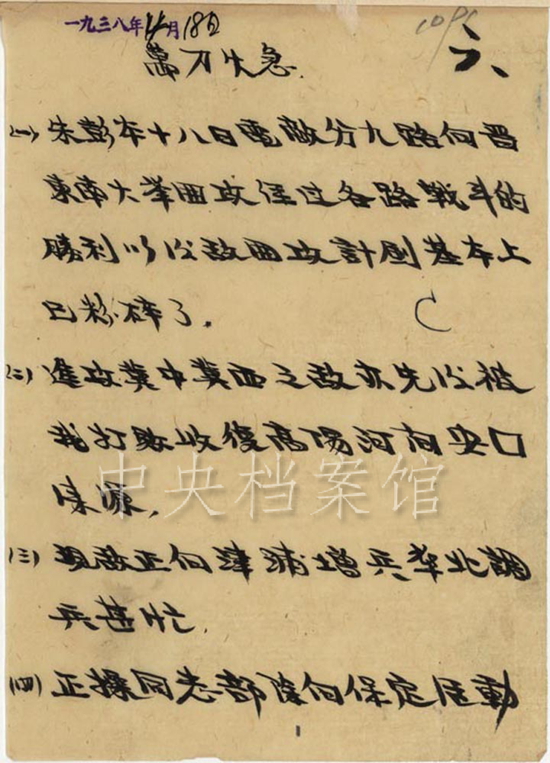 一九三八年4月18日
萬万火急.
六、
(一) 朱彭本十八日電敵分九路向晋
東南大举囬攻經过各路戰斗的
勝利以後敵囬攻計劃基本上
已粉碎了.
C
(二) 進攻冀中冀西之敌亦先後被
我打敗收復高陽河间安口
涞源,
中央档案馆
(三) 現敌正向津浦增兵华北調
兵甚忙.
(四) 正操同志部隊向保定活動
1